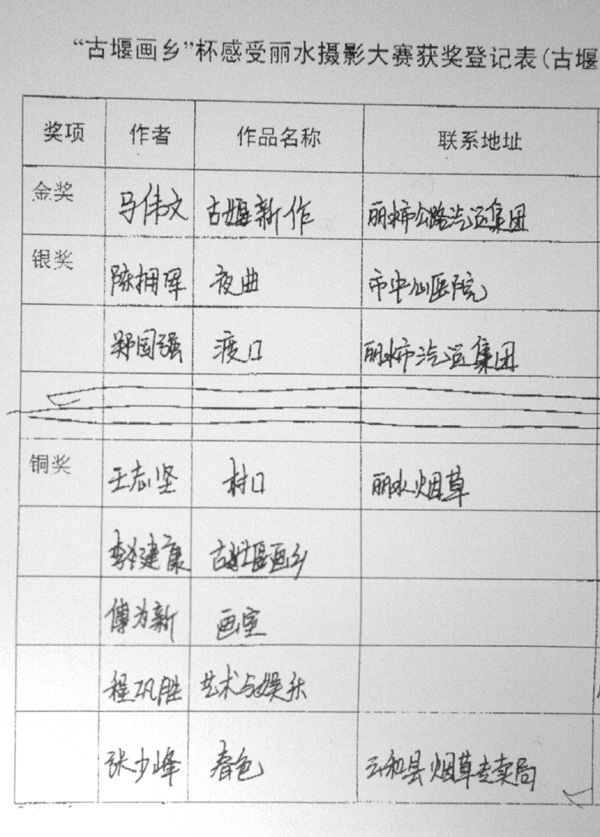 “古堰画乡”杯感受丽水摄影大赛获奖登记表(古堰
奖项 作者 作品名称 联系地址
金奖 马伟文 古堰新作 丽水市公路汽运集团
银奖 陈拥军 夜曲 市中心医院
郑国强 渡口 丽水市汽运集团
铜奖 王志坚 村口 丽水烟草
李建康 古堰画乡
傅为新 画室
程巩胜 艺术与娱乐
张少峰 春色 云和县烟草专卖局